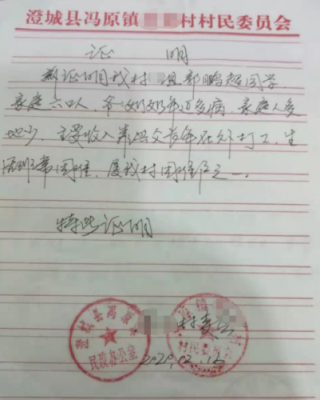 澄城县冯原镇 村村民委员会
证 明
兹证明我村 组郭鹏超同学
家庭六口人,爷奶奶年迈多病,家庭人多
地少,主要收入靠父长年在外打工,生
活非常困难,属我村困难户之一。
特此证明
澄城县冯原
民政办公室
村委会
2020.2.12